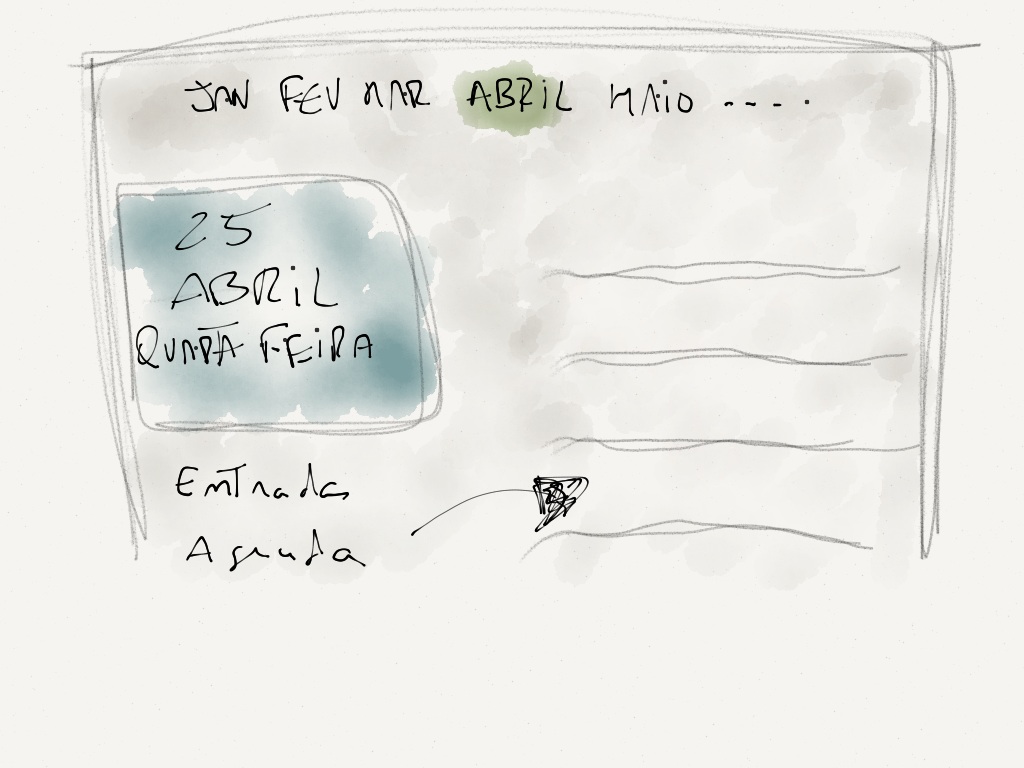 JAN FEV MAR ABRiL MAiO ----.
25
ABRiL
QUARTA FEiRA
Entradas
Agenda